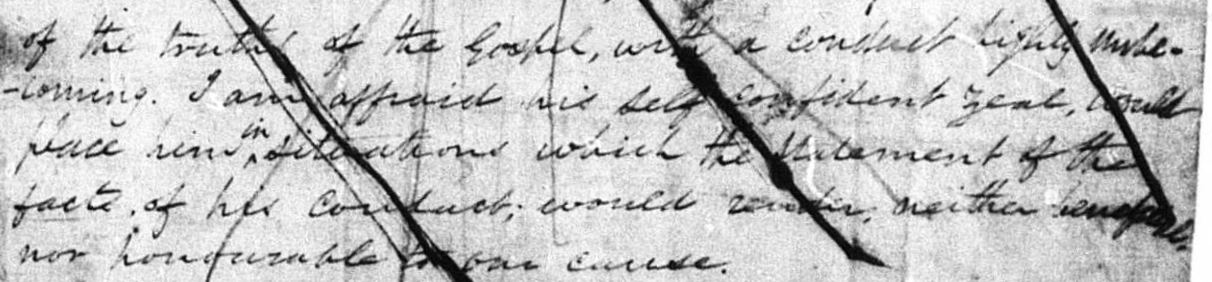 of the truths of the Gospel, with a conduct highly unbe-
-coming. I am affraid his self confident zeal, would
place him in situations which the statement of the
facts, of his conduct, would render, neither beneficial
nor honourable to our cause.